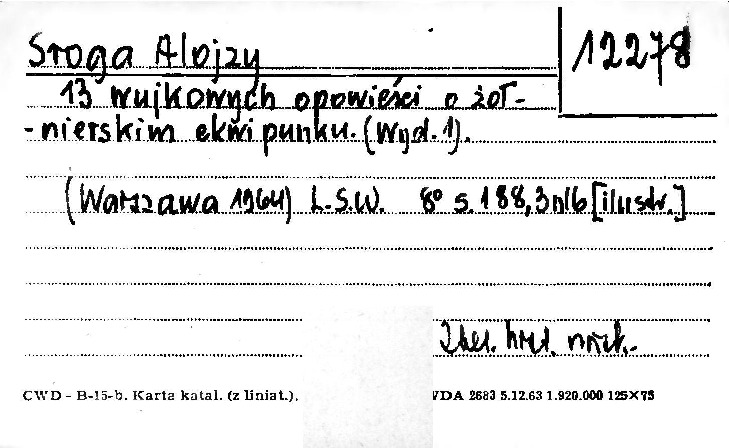 Sroga Alojzy
12278
13 wujkowych opowieści o żoł-
-nierskim ekwipunku. (Wyd. 1).
(Warszawa 1964) L.S.W. 8° s. 188, 3 nlb [ilustr.]
CWD - B-15-b. Karta katal. (z liniat.). WDA 2683 5.12.63 1.920.000 125×75